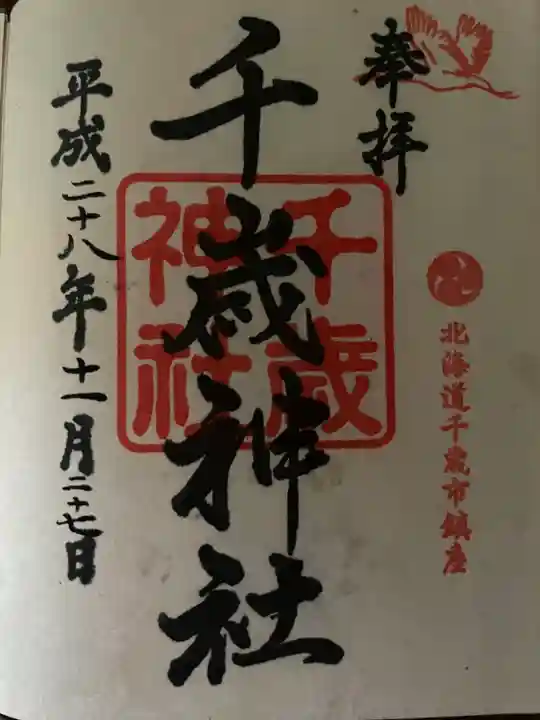 奉拝
北海道千歳市鎮座
千歳神社
千歳
神社
平成二十八年十一月二十七日